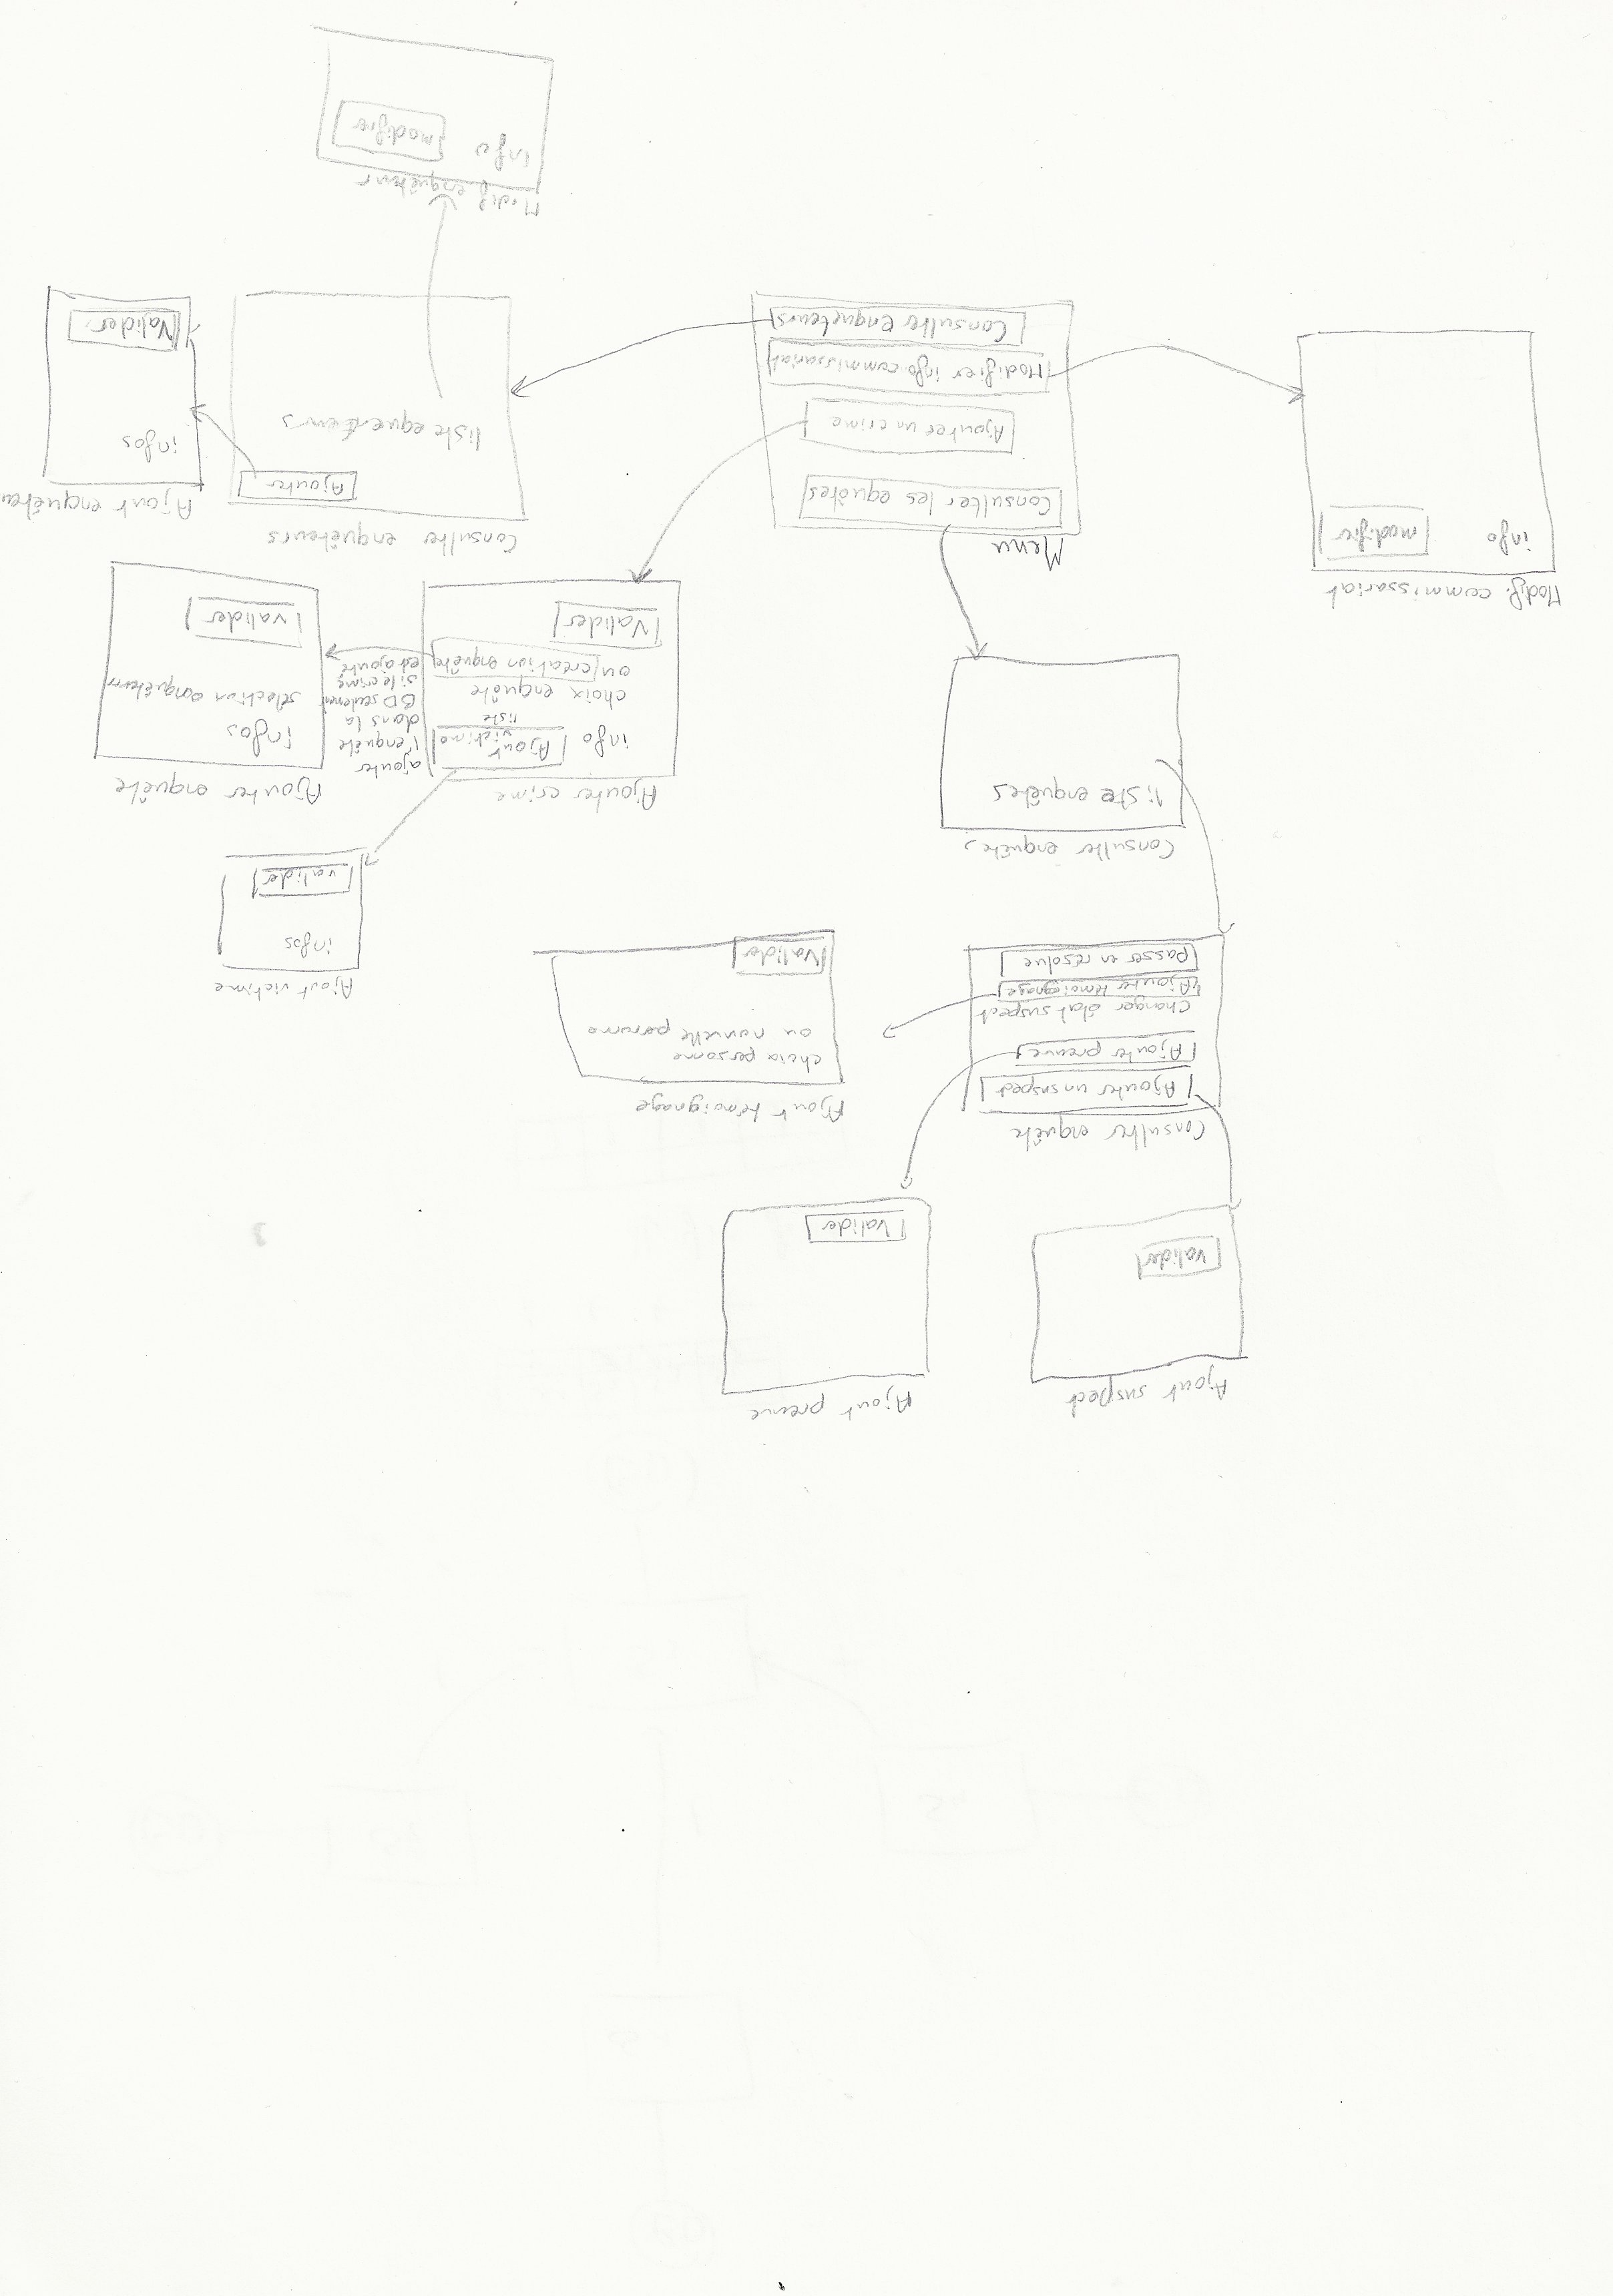 Ajout suspect
Valider
Ajout preuve
Valider
Consulter enquête
Ajouter un suspect
Ajouter preuve
Changer état suspect
Ajouter témoignage
passer en résolue
Ajout témoignage
choix personne
ou nouvelle personne
Valider
Ajout victime
infos
valider
Consulter enquêtes
liste enquêtes
Ajouter crime
info
Ajout
victime
liste
choix enquête
ou création enquête
Valider
ajouter
l'enquête
dans la
BD seulement
si le crime
est ajouté
Ajouter enquête
infos
sélection enquêteurs
valider
Modif. commissariat
info
modifier
Menu
Consulter les equêtes
Ajouter un crime
Modifier info commissariat
Consulter enqueteurs
Consulter enquêteurs
Ajouter
liste equerteurs
Ajout enquêteu
infos
Valider
Modif enquêteur
info
modifier